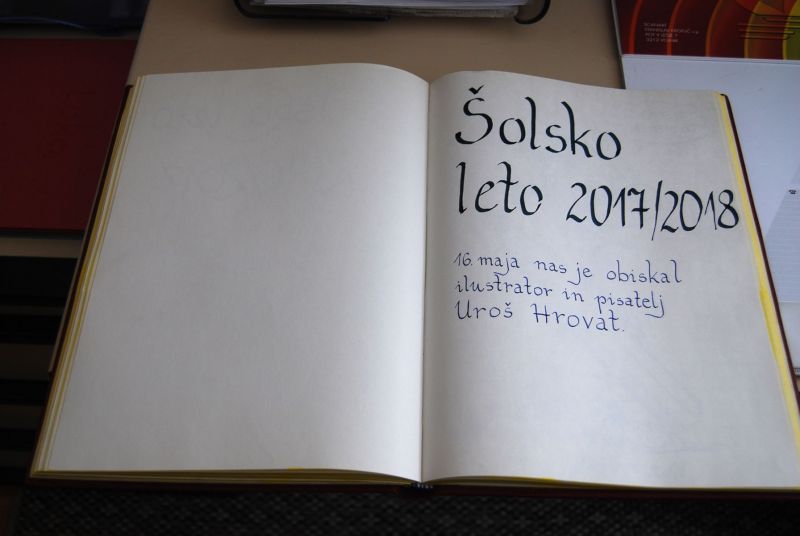 Šolsko
leto 2017/2018
16. maja nas je obiskal
ilustrator in pisatelj
Uroš Hrovat.